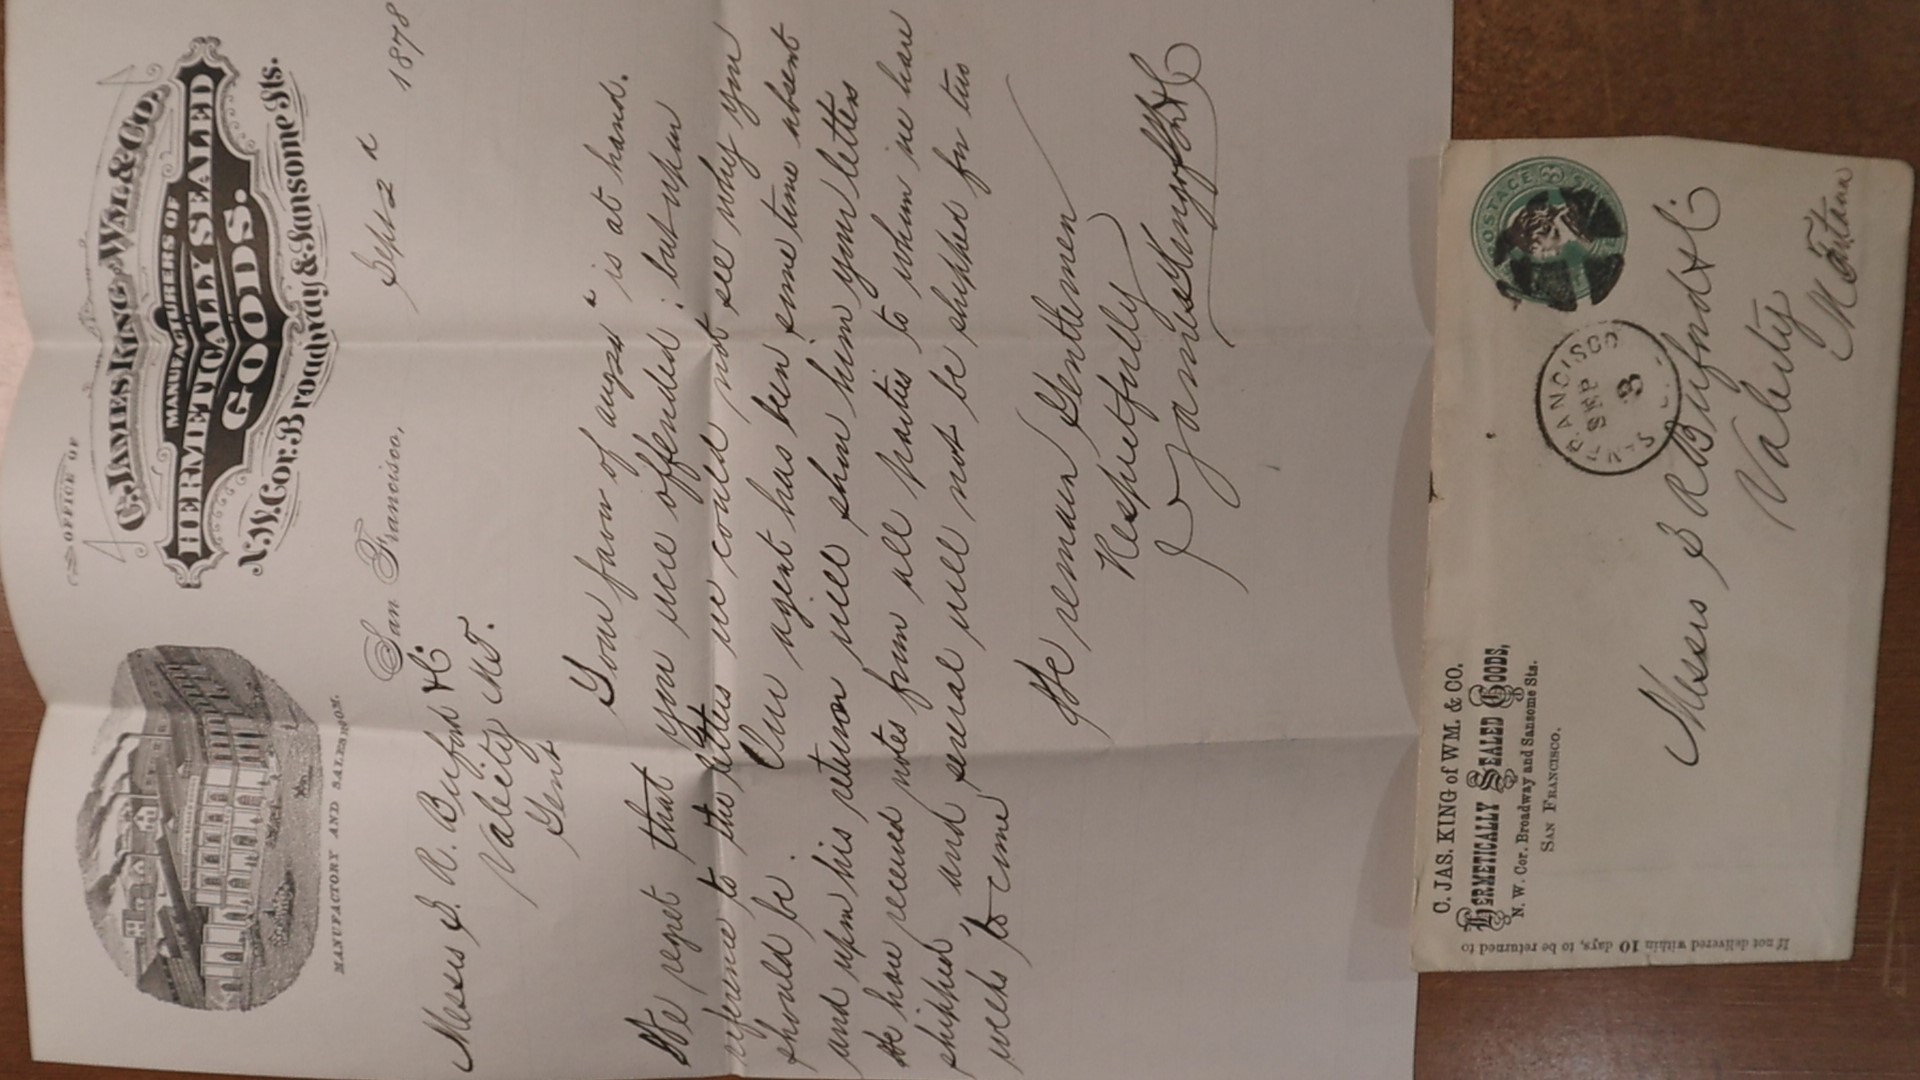 OFFICE OF
C. JAMES KING OF WM. & CO.
MANUFACTURERS OF
HERMETICALLY SEALED
GOODS.
N.W. Cor. Broadway & Sansome Sts.
MANUFACTORY AND SALESROOM.
San Francisco, Sept 2d 1878
Messrs S. R. Buford & Co
Gent
Your favor of is at hand.
We regret that you were offended; but upon
reference to the letters we could not see why you
should be. Our agent has been some time absent
and upon his return will show him your letters
We have received notes from all parties to whom we have
shipped and several will not be shipped for two
weeks to come
We remain Gentlemen
Respectfully
C James King of Wm & Co
C. JAS. KING of WM. & CO.
HERMETICALLY SEALED GOODS,
N. W. Cor. Broadway and Sansome Sts.
SAN FRANCISCO.
If not delivered within 10 days, to be returned to
POSTAGE
SAN FRANCISCO
SEP
3
Messrs S R Buford & Co
Montana